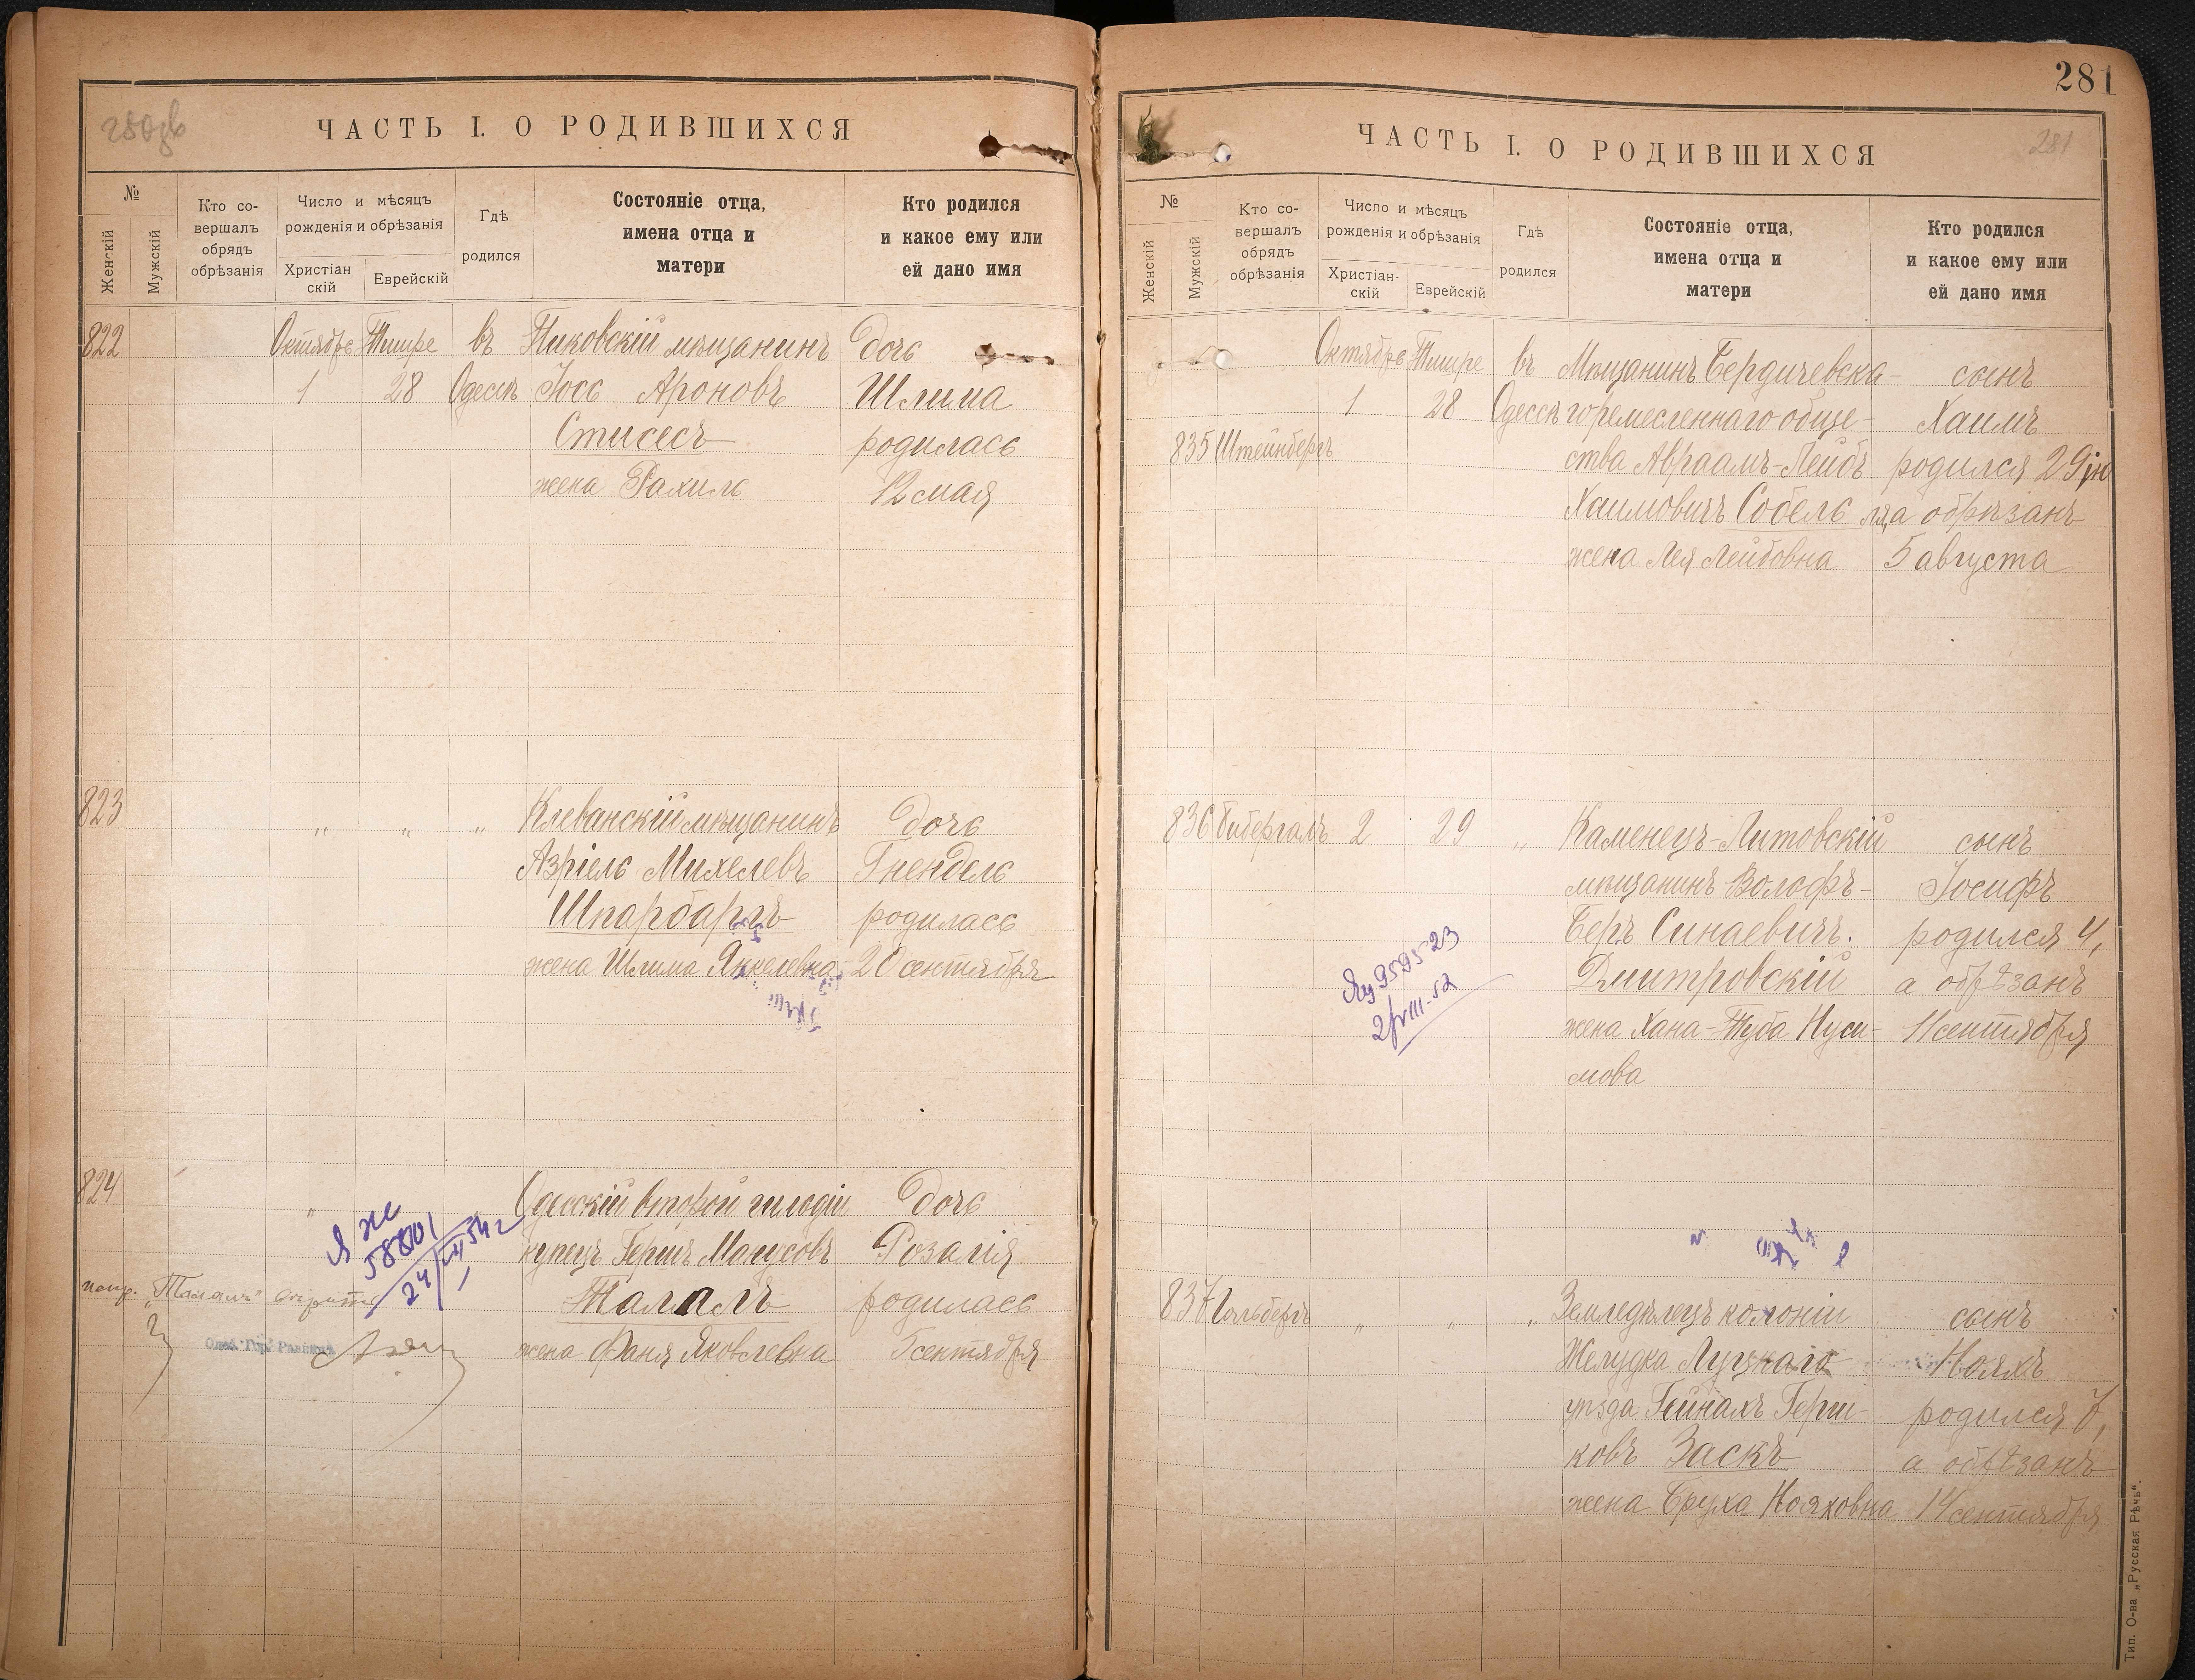 280зв
ЧАСТЬ I. О РОДИВШИХСЯ
№
Женскій
Мужскій
Кто со-
вершалъ
обрядъ
обрѣзанія
Число и мѣсяцъ
рожденія и обрѣзанія
Христіан
скій
Еврейскій
Гдѣ
родился
Состояніе отца,
имена отца и
матери
Кто родился
и какое ему или
ей дано имя
822 Октябрь Тишре въ Пиковскій мѣщанинъ дочь
1 28 Одессѣ Іось Ароновъ Шлима
Стисесъ родилась
жена Рахиль 12 мая
823 " " " Клеванскій мѣщанинъ дочь
Азріель Михелевъ Гнендель
Шпарбаргъ родилась
жена Шлима Янкелевна 20 сентября
824 " Одесскій второй гильдіи дочь
купецъ Гершъ Манусовъ Розалія
Талалъ родилась
жена Фаня Яковлевна сентября
Я ЖС
588101
24/IV 54 г
"Талалъ"
Одес. Гор. Раввинъ
281
ЧАСТЬ I. О РОДИВШИХСЯ
281
№
Женскій
Мужскій
Кто со-
вершалъ
обрядъ
обрѣзанія
Число и мѣсяцъ
рожденія и обрѣзанія
Христіан-
скій
Еврейскій
Гдѣ
родился
Состояніе отца,
имена отца и
матери
Кто родился
и какое ему или
ей дано имя
Октябрь Тишре въ Мѣщанинъ Бердичевска- сынъ
1 28 Одессѣ го ремесленнаго обще- Хаимъ
835 Штейнбергъ ства Авраамъ-Лейбъ родился 29 ію
Хаимовичъ Собель ля, а обрѣзанъ
жена Лея Лейбовна 5 августа
836 Бибергалъ 2 29 " Каменецъ-Литовскій сынъ
мѣщанинъ Волофъ- Іосифъ
Беръ Синаевичъ. родился 4,
Дмитровскій а обрѣзанъ
жена Хана-Туба Нуси- 11 сентября
мова
959523
2/VIII-52
837 Гольбергъ " " " Земледѣлецъ колоніи сынъ
Желудка Луцкаго Нояхъ
уѣзда Гейнахъ Герш- родился 7,
ковъ Заскъ а обрѣзанъ
жена Бруха Нояховна 14 сентября
Тип. О-ва „Русская Рѣчь".